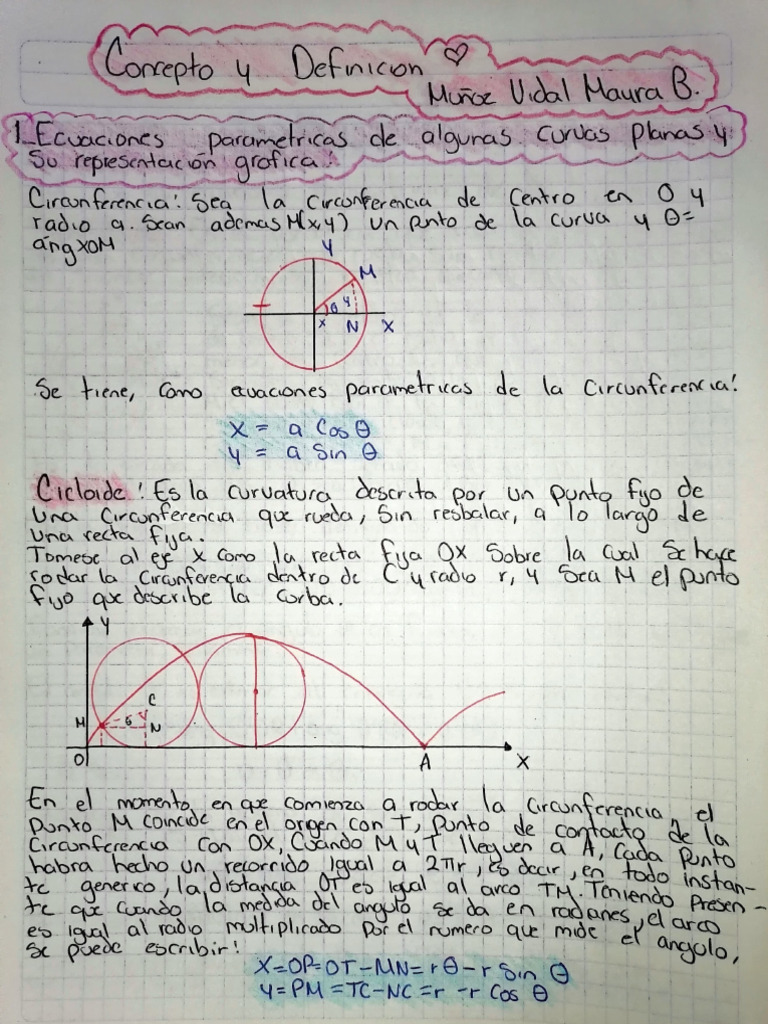 Concepto y Definicion
Muñoz Vidal Maura B.
1_Ecuaciones parametricas de algunas curvas planas y
su representación grafica:
Circunferencia: Sea la circunferencia de centro en O y
radio a. Sean ademas M(x,y) un punto de la curva y θ=
áng XOM
Y
M
θ y
x N X
Se tiene, como ecuaciones parametricas de la circunferencia:
X = a Cos θ
y = a Sin θ
Cicloide: Es la curvatura descrita por un punto fijo de
una circunferencia que rueda, sin resbalar, a lo largo de
una recta fija.
Tomese al eje x como la recta fija OX sobre la cual se hace
rodar la circunferencia dentro de C y radio r, y sea M el punto
fijo que describe la curba.
Y
C
M N
O A X
En el momento en que comienza a rodar la circunferencia, el
punto M coincide en el origen con T, punto de contacto de la
circunferencia con OX, Cuando M y T lleguen a A, cada punto
habra hecho un recorrido igual a 2πr, es decir, en todo instan-
te generico, la distancia OT es igual al arco TM. Teniendo presen-
te que cuando la medida del angulo se da en radianes, el arco
es igual al radio multiplicado por el numero que mide el angulo,
se puede escribir:
X=OP=OT-MN=rθ-r Sin θ
y=PM=TC-NC=r-r Cos θ